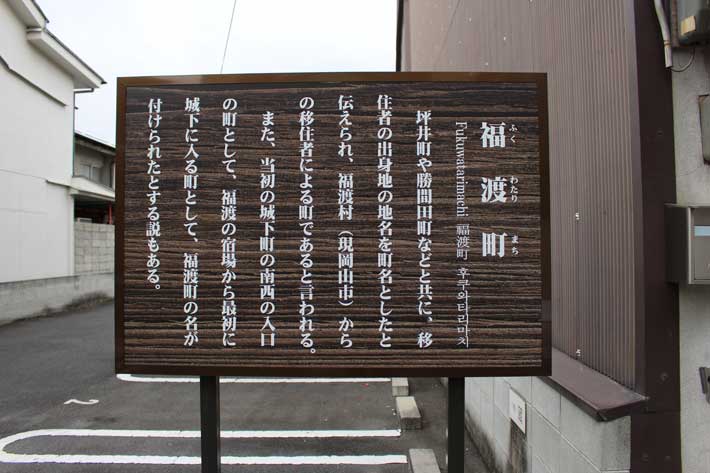 福渡町
ふくわたりまち
Fukuwatarimachi 福渡町 후쿠와타리마치
坪井町や勝間田町などと共に、移
住者の出身地の地名を町名としたと
伝えられ、福渡村（現岡山市）から
の移住者による町であると言われる。
また、当初の城下町の南西の入口
の町として、福渡の宿場から最初に
城下に入る町として、福渡町の名が
付けられたとする説もある。